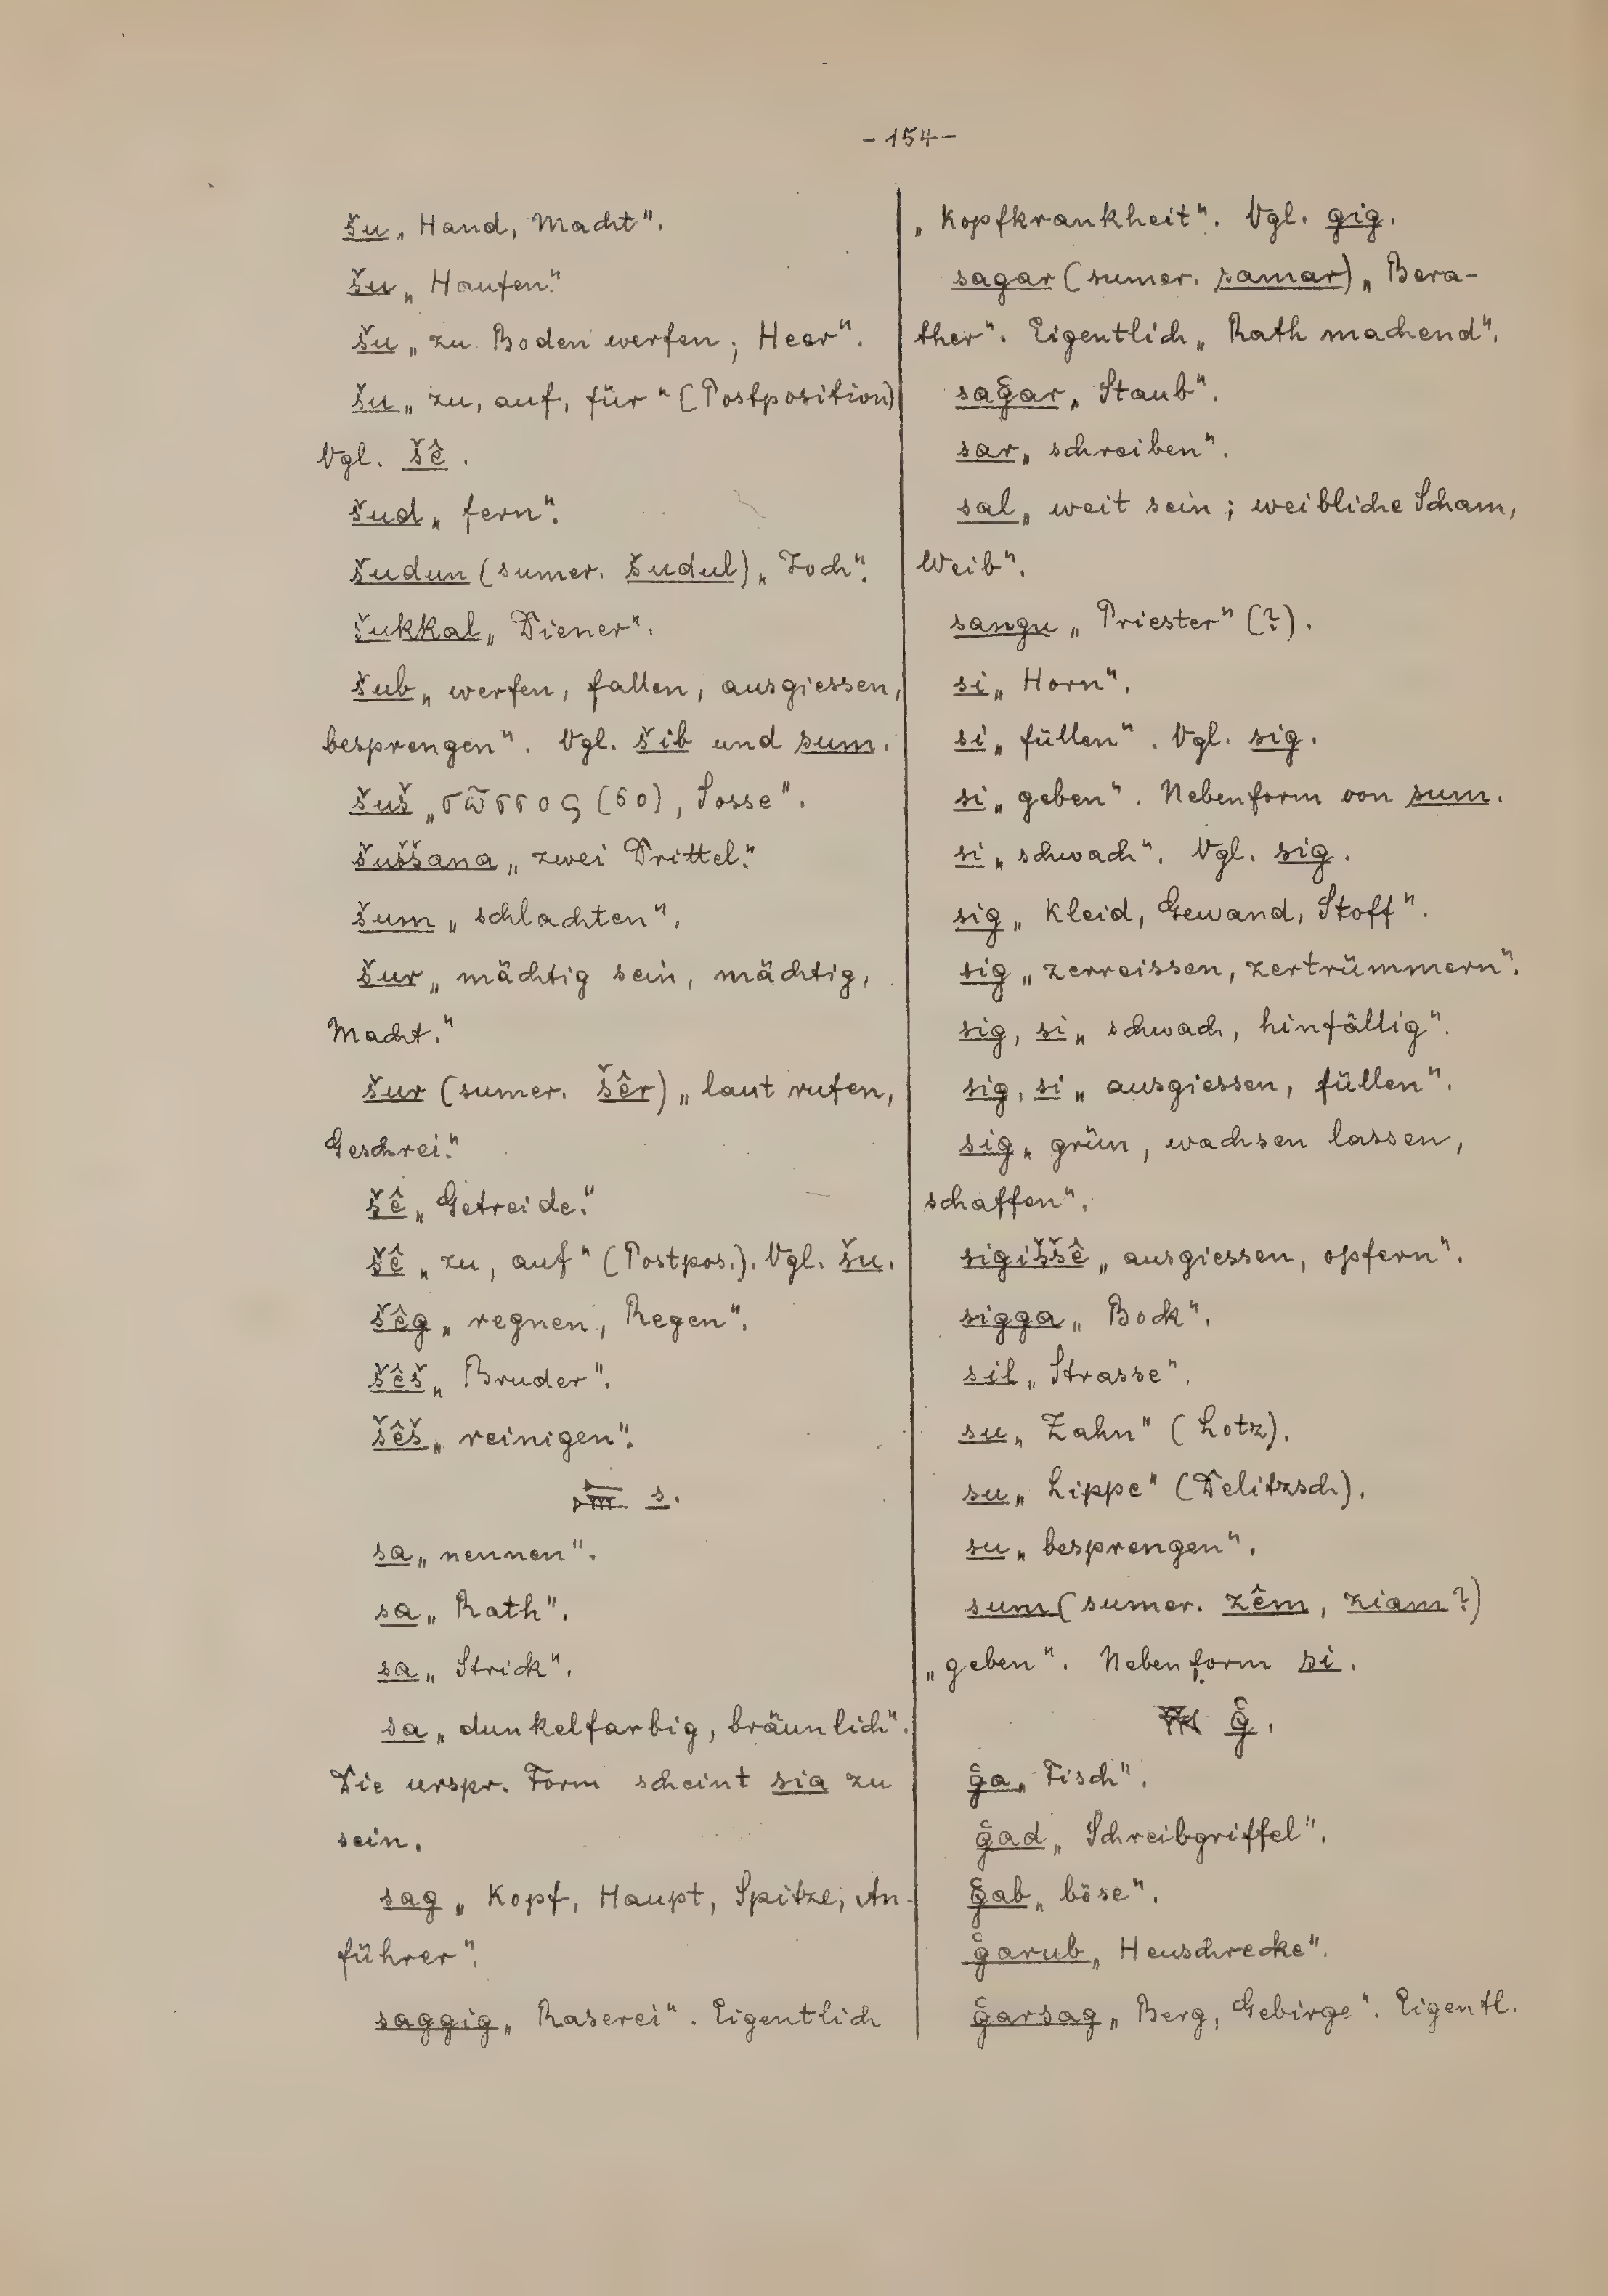 - 154 -
šu „Hand, Macht“.
šu „Haufen“.
šu „zu Boden werfen; Heer“.
šu „zu, auf, für“ (Postposition)
Vgl. šê.
šud „fern“.
šudun (sumer. šudul) „Joch“.
šukkal „Diener“.
šub „werfen, fallen, ausgiessen,
besprengen“. Vgl. šib und sum.
šuš „σῶσσος (60), Sosse“.
šuššana „zwei Drittel“.
šum „schlachten“.
šur „mächtig sein, mächtig,
Macht.“
šur (sumer. šêr) „laut rufen,
Geschrei“.
šê „Getreide“.
šê „zu, auf“ (Postpos.). Vgl. šu.
šêg „regnen, Regen“.
šêš „Bruder“.
šêš „reinigen“.
s.
sa „nennen“.
sa „Rath“.
sa „Strick“.
sa „dunkelfarbig, bräunlich“.
Die urspr. Form scheint sia zu
sein.
sag „Kopf, Haupt, Spitze, An-
führer“.
saggig „Raserei“. Eigentlich
„Kopfkrankheit“. Vgl. gig.
sagar (sumer. samar) „Bera-
ther“. Eigentlich „Rath machend“.
sağar „Staub“.
sar „schreiben“.
sal „weit sein; weibliche Scham,
Weib“.
sangu „Priester“ (?).
si „Horn“.
si „füllen“. Vgl. sig.
si „geben“. Nebenform von sum.
si „schwach“. Vgl. sig.
sig „Kleid, Gewand, Stoff“.
sig „zerreissen, zertrümmern“.
sig, si „schwach, hinfällig“.
sig, si „ausgiessen, füllen“.
sig „grün, wachsen lassen,
schaffen“.
sigiššê „ausgiessen, opfern“.
sigga „Bock“.
sil „Strasse“.
su „Zahn“ (Lotz).
su „Lippe“ (Delitzsch).
su „besprengen“.
sum (sumer. zêm, ziam?)
„geben“. Nebenform si.
ğ.
ğa „Fisch“.
ğad „Schreibgriffel“.
ğab „böse“.
ğarub „Heuschrecke“.
ğarsag „Berg, Gebirge“. Eigentl.